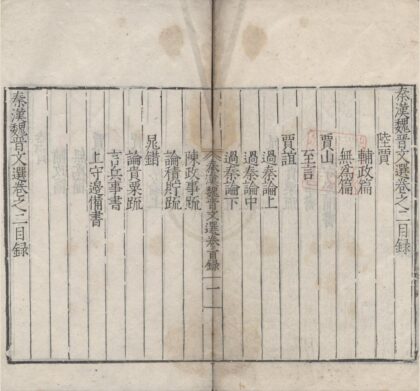 秦漢魏晉文選卷之二目録
陸賈
輔政篇
無為篇
賈山
至言
賈誼
過秦論上
過秦論中
過秦論下
秦漢魏晉文選卷目録 一
陳政事疏
論積貯疏
晁錯
論貴粟疏
言兵事書
上守邊備書
秦漢魏晉文選卷之二目録